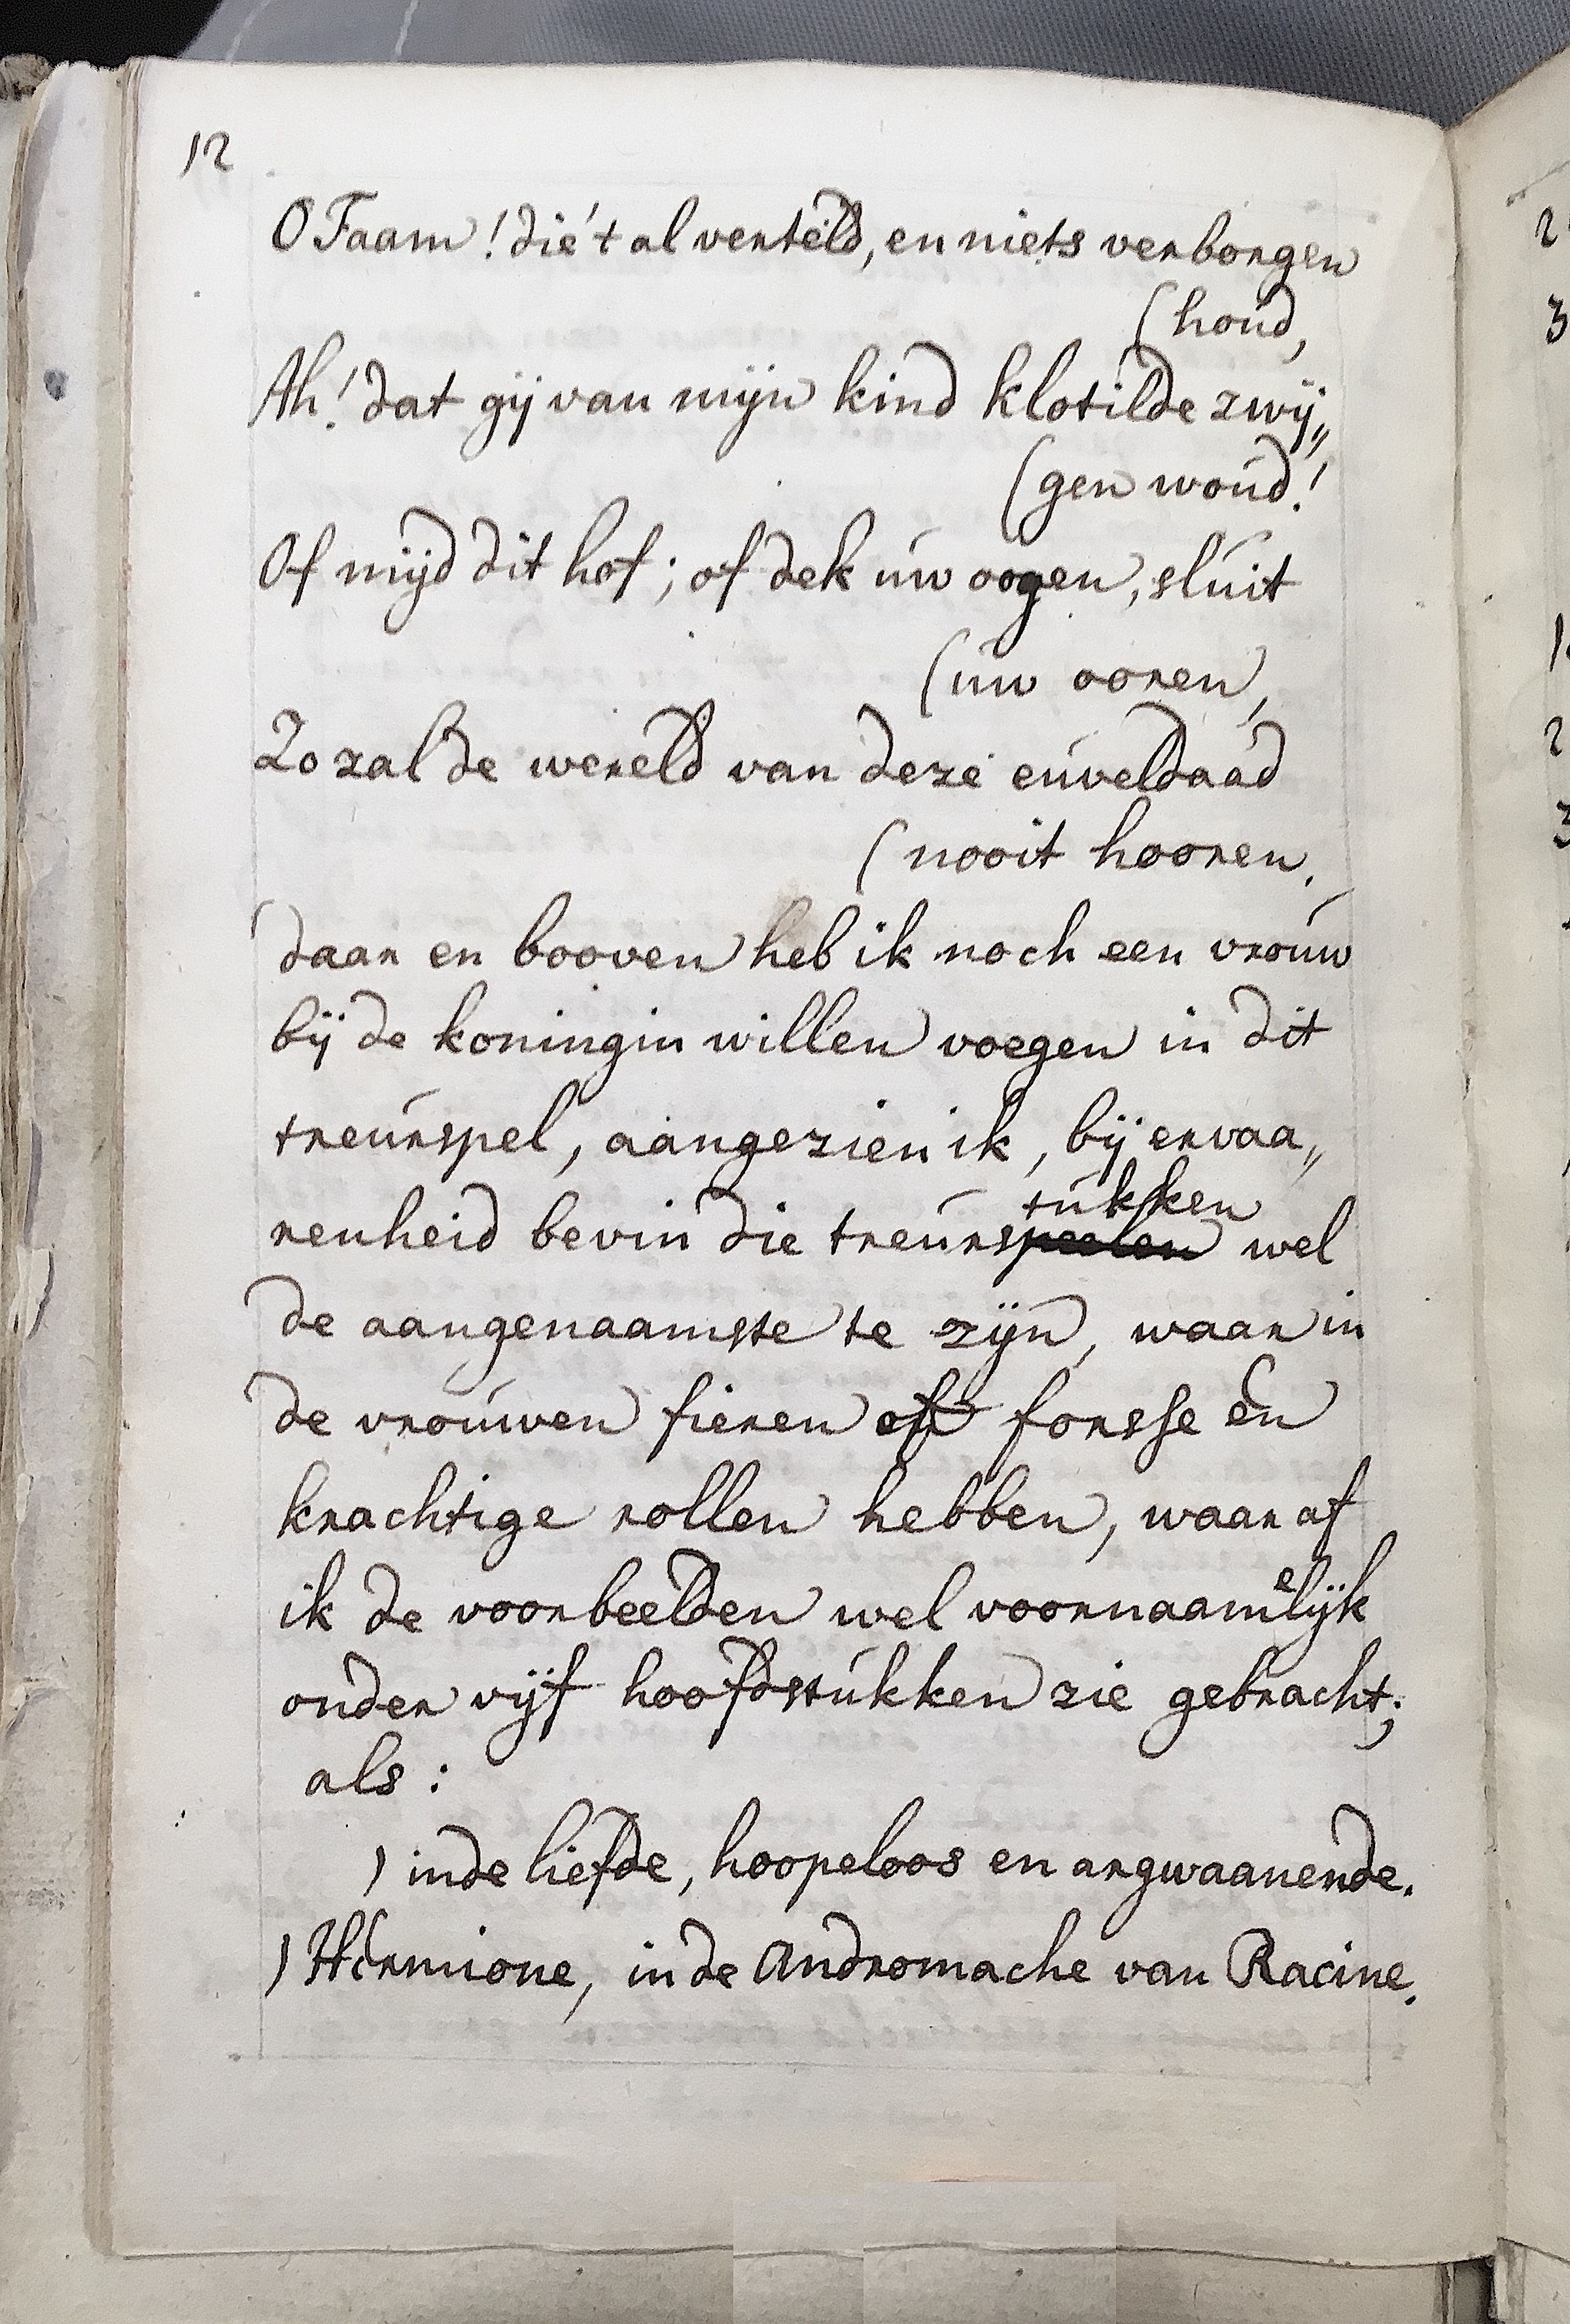 12
O Faam! die 't al verteld, en niets verborgen
(houd,
Ah! dat gij van mijn kind klotilde zwij„
(gen woud!
Of mijd dit hof; of dek uw oogen, sluit
(uw ooren,
Zo zal de wereld van deze euveldaad
(nooit hooren.
daar en booven heb ik noch een vrouw
bij de koningin willen voegen in dit
treurspel, aangezien ik, bij ervaa„
renheid bevin die treurspeelen wel
stukken
de aangenaamste te zijn, waar in
de vrouwen fieren of forsse en
krachtige rollen hebben, waar af
ik de voorbeelden wel voornaamelijk
onder vijf hoofdstukken zie gebracht;
als:
) in de liefde, hoopeloos en argwaanende.
) Hermione, in de Andromache van Racine.